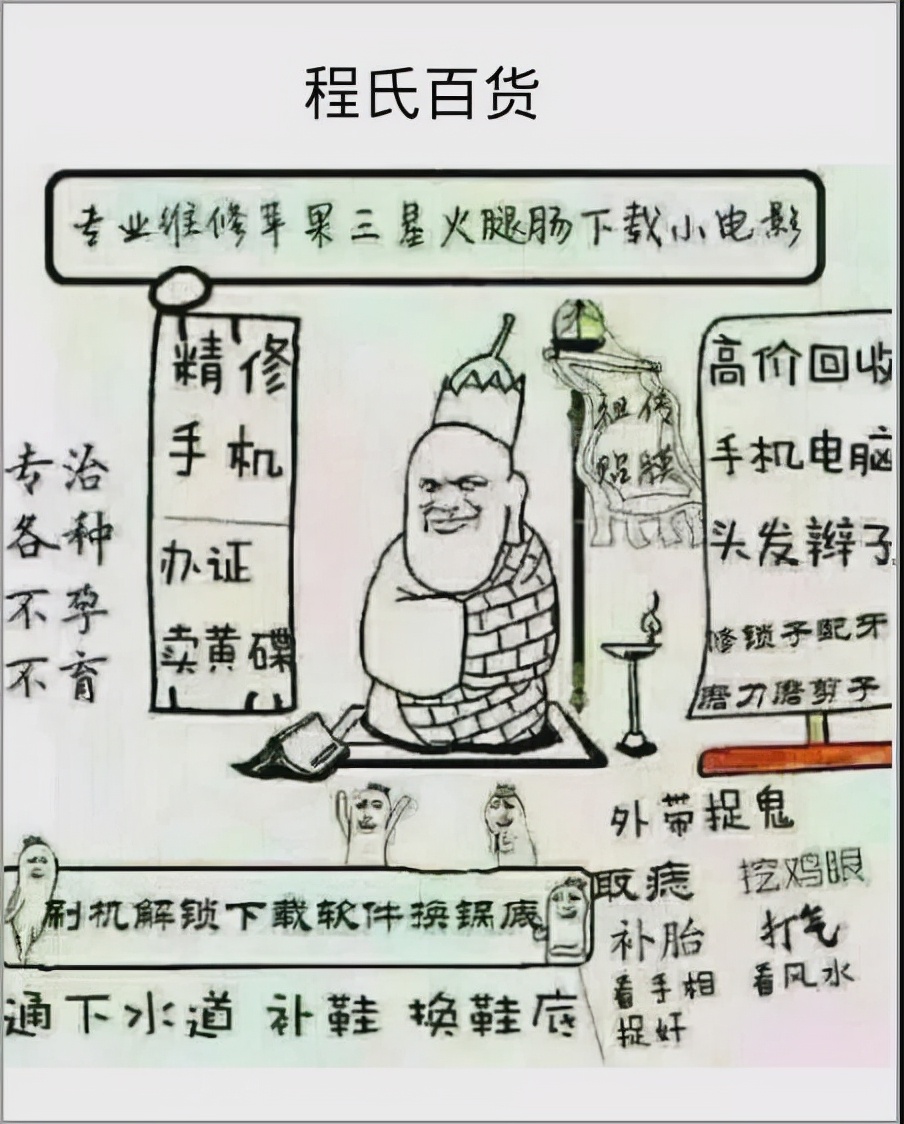 程氏百货
专业维修苹果三星火腿肠下载小电影
精修
手机
办证
卖黄碟
专治
各种
不孕
不育
祖传
贴膜
高价回收
手机电脑
头发辫子
修锁子配牙
磨刀磨剪子
外带捉鬼
取痣 挖鸡眼
补胎 打气
看手相 看风水
捉奸
刷机解锁下载软件换锅底
通下水道 补鞋 换鞋底